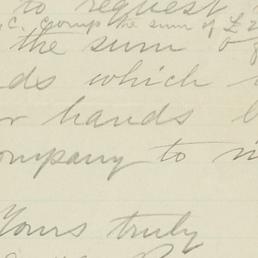 to request
C. Comp the sum of £
the sum o
ds which
r hands b
ompany to m
Yours truly